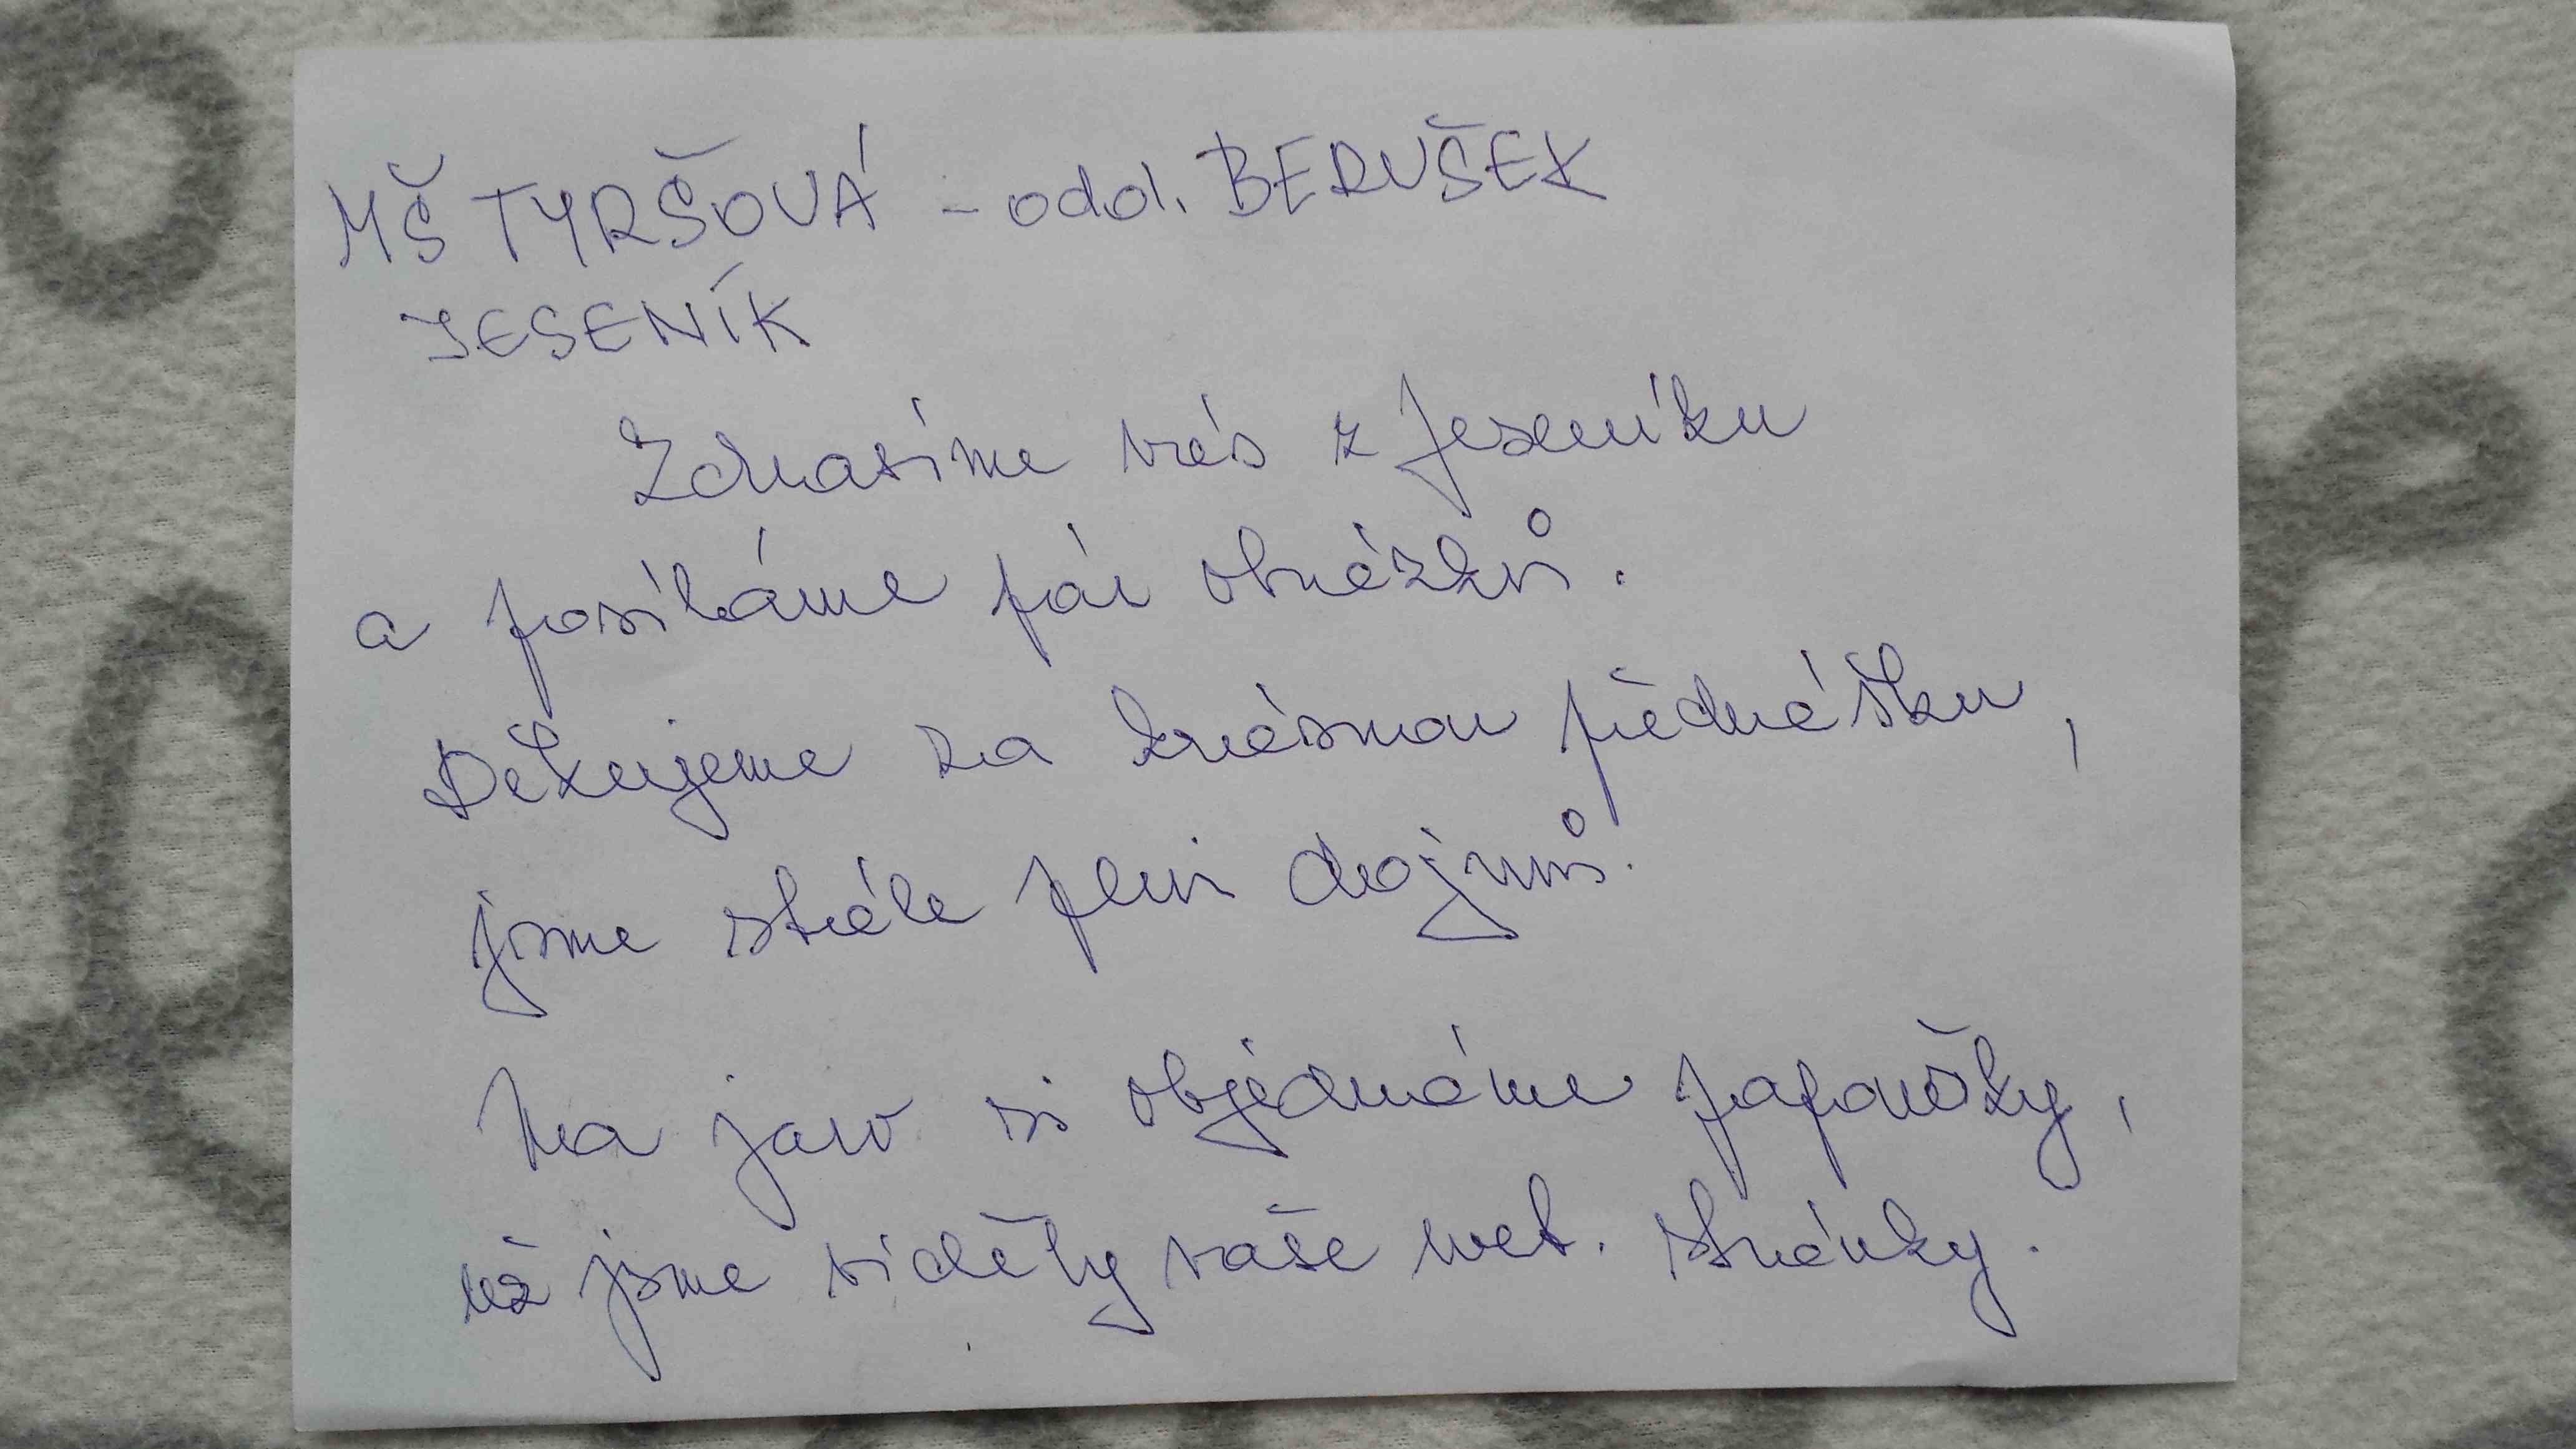 MŠ TYRŠOVÁ - odd. BERUŠEK
JESENÍK
Zdravíme vás z Jeseníku
a posíláme pár obrázků.
Děkujeme za krásnou přednášku,
jsme stále plni dojmů.
Na jaro si objednáme papoušky,
už jsme viděly vaše web. stránky.